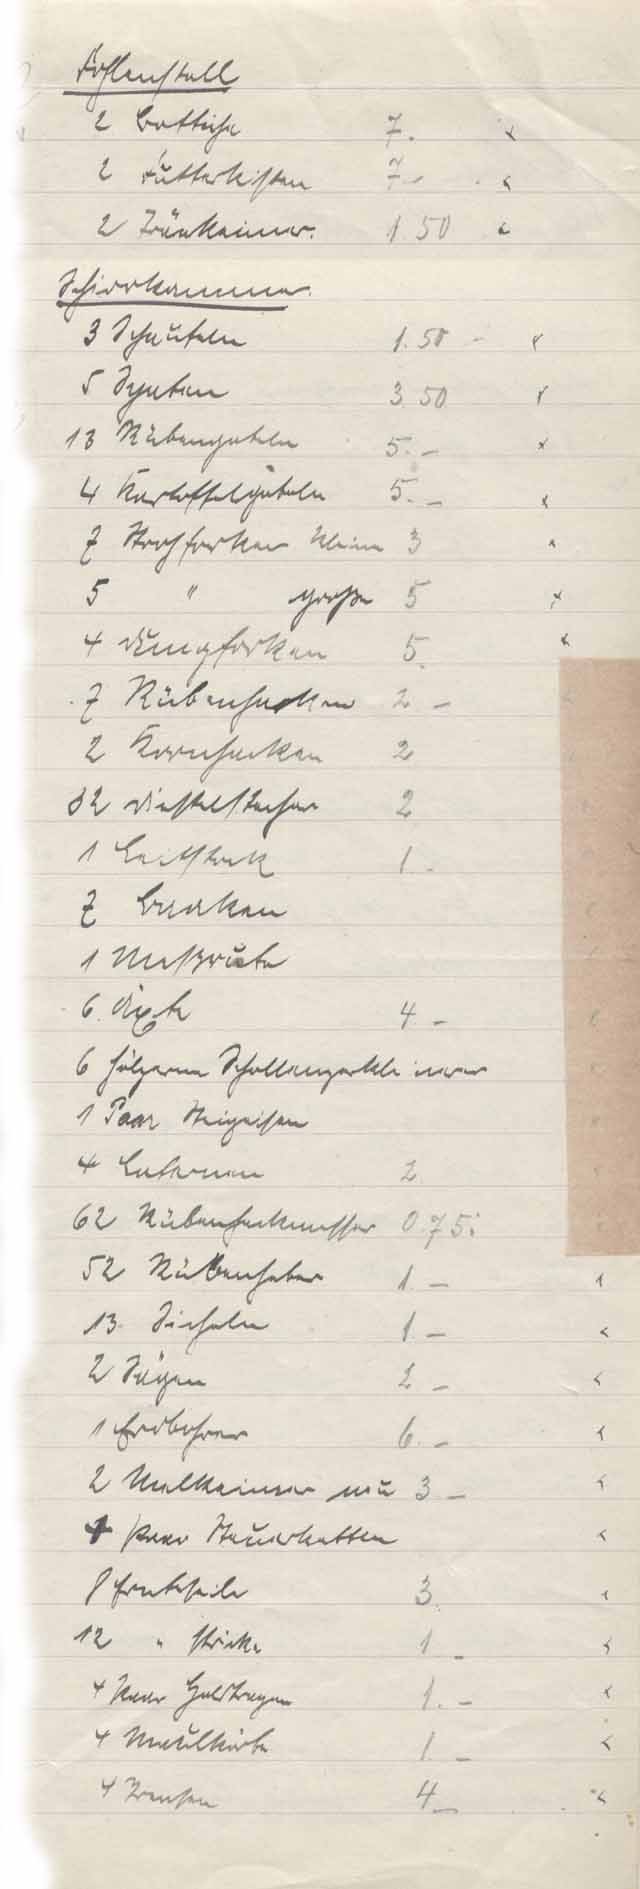 Fohlenstall
2 Bottiche 7. x
2 Futterkisten 7.- x
2 Tränkeimer. 1.50 x
Schirrkammer.
3 Schaufeln 1.50 - x
5 Spaten 3.50 x
13 Rübengabeln 5.- x
4 Kartoffelgabeln 5.- x
7 Strohforken kleine 3 x
5 " große 5 x
4 Dungforken 5. x
7 Rübenhacken 2 -
2 Kornhacken 2
32 Distelstecher 2
1 Leitstock 1.-
7 Braken
1 Meßrute
6 Äxte 4 -
6 hölzerne
1 Paar Steigeisen
4 Laternen 2
62 Rübenhackmesser 0.75
52 Rübenheber 1.- x
13 Sicheln 1 - x
2 Sägen 2 - x
1 Erdbohrer 6.- x
2 Melkeimer neu 3 - x
4 Paar Steuerketten x
8 Ernteseile 3. x
12 " stricke 1 - x
4 Paar 1.- x
4 Maulkörbe 1 - x
4 Trensen 4 - x